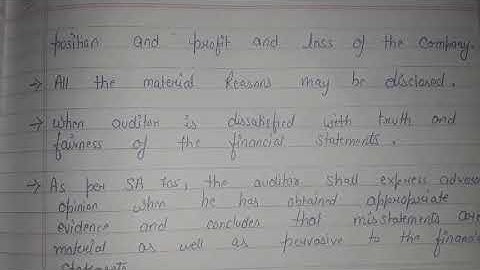 position and profit and loss of the Company.
→ All the material Reasons may be disclosed.
→ When auditor is dissatisfied with truth and
fairness of the financial statements.
→ As per SA 705, the auditor shall express
opinion when he has obtained appropriate
evidence and concludes that misstatements are
material as well as pervasive to the
statements